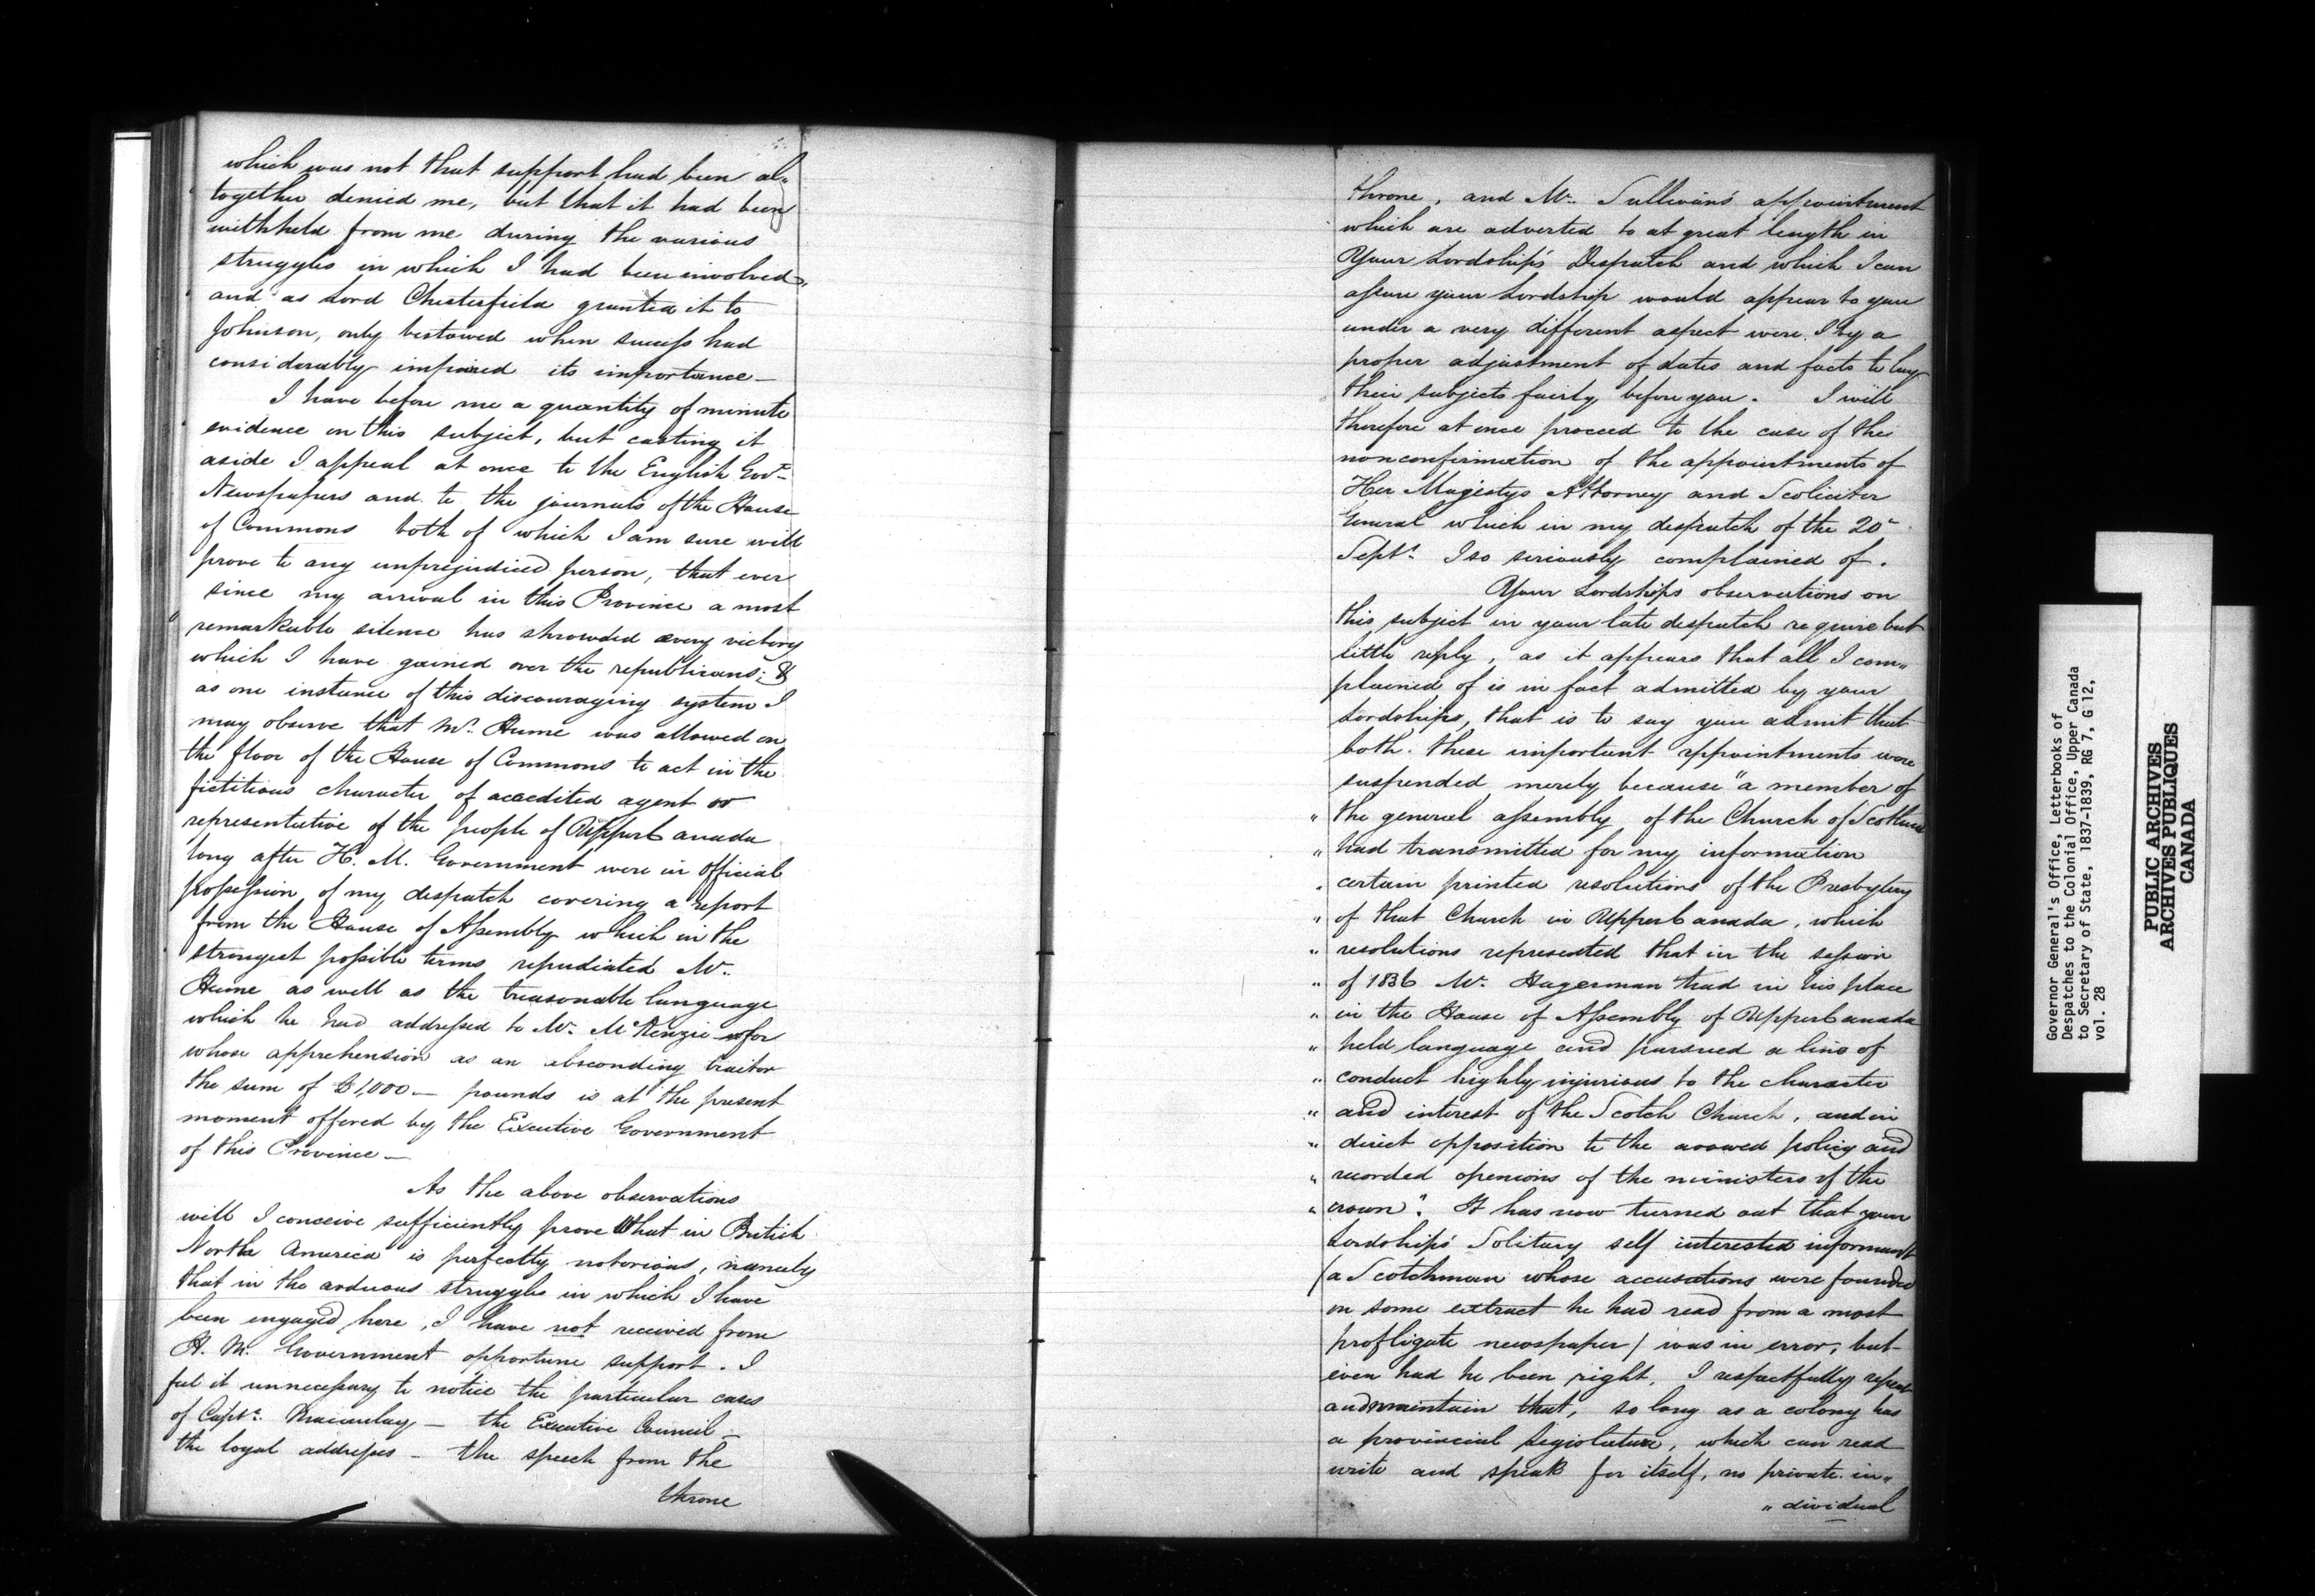 which was not that support had been al„
together denied me, but that it had been
withheld from me during the various
struggles in which I had been involved,
and as Lord Chesterfield granted it to
Johnson, only bestowed when success had
considerably impaired its importance —
I have before me a quantity of minute
evidence on this subject, but casting it
aside I appeal at once to the English Govt
Newspapers and to the journals of the House
of Commons both of which I am sure will
prove to any unprejudiced person, that ever
since my arrival in this Province a most
remarkable silence has shrowded every victory
which I have gained over the republicans; &
as one instance of this discouraging system I
may observe that Mr. Hume was allowed on
the floor of the House of Commons to act in the
fictitious character of accedited agent or
representative of the people of Upper Canada
long after H. M. Government were in official
possession of my despatch covering a report
from the House of Assembly which in the
strongest possible terms repudiated Mr.
Hume as well as the treasonable language
which he had addressed to Mr. McKenzie for
whose apprehension as an absconding traitor
the sum of £1,000 — pounds is at the present
moment offered by the Executive Government
of this Province —
As the above observations
will I conceive sufficiently prove what in British
North America is perfectly notorious, namely
that in the arduous struggles in which I have
been engaged here, I have not received from
H. M. Government opportune support. I
feel it unnecessary to notice the particular cases
of Captn. Macaulay — the Executive Council —
the loyal addresses — the speech from the
throne
throne, and Mr. Sullivan's appointment
which are adverted to at great length in
Your Lordship's Despatch and which I can
assure your Lordship would appear to you
under a very different aspect were I by a
proper adjustment of dates and facts to lay
their subjects fairly before you. I will
therefore at once proceed to the case of the
nonconfirmation of the appointments of
Her Majestys Attorney and Soliciter
General which in my despatch of the 20th
Sept. I so seriously complained of.
Your Lordships observations on
this subject in your late despatch require but
little reply, as it appears that all I com„
plained of is in fact admitted by your
Lordships, that is to say you admit that
both these important appointments were
suspended merely because "a member of
" the general assembly of the Church of Scotland
" had transmitted for my information
" certain printed resolutions of the Presbytery
" of that Church in Upper Canada, which
" resolutions represented that in the session
" of 1836 Mr. Hagerman had in his place
" in the House of Assembly of Upper Canada
" held language and pursued a line of
" conduct highly injurious to the character
" and interest of the Scotch Church, and in
" direct opposition to the avowed policy and
" recorded openions of the ministers of the
" crown". It has now turned out that your
Lordships' Solitary self interested informant
(a Scotchman whose accusations were founded
on some extract he had read from a most
profligate newspaper) was in error, but
even had he been right, I respectfully repeat
and maintain that, so long as a colony has
a provincial Legislature, which can read
write and speak for itself, no private in„
„dividual
Governor General's Office, Letterbooks of
Despatches to the Colonial Office, Upper Canada
to Secretary of State, 1837-1839, RG 7, G 12,
vol. 28
PUBLIC ARCHIVES
ARCHIVES PUBLIQUES
CANADA